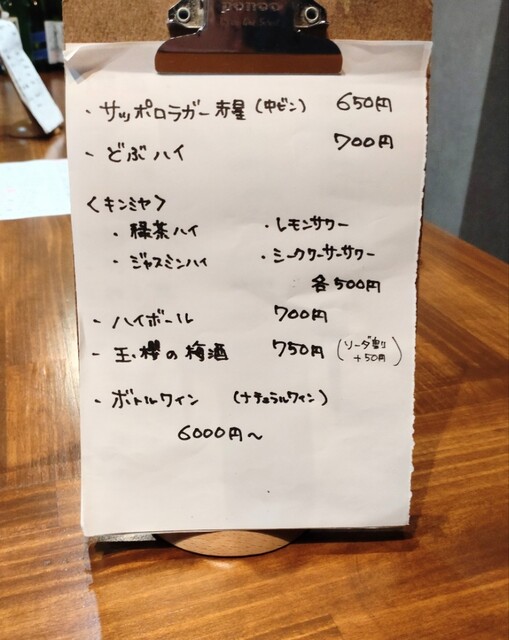 ・サッポロラガー赤星（中ビン） 650円
・どぶハイ 700円
〈キンミヤ〉
・緑茶ハイ ・レモンサワー
・ジャスミンハイ ・シークワーサーサワー
各500円
・ハイボール 700円
・玉櫻の梅酒 750円（ソーダ割り +50円）
・ボトルワイン （ナチュラルワイン）
6000円〜